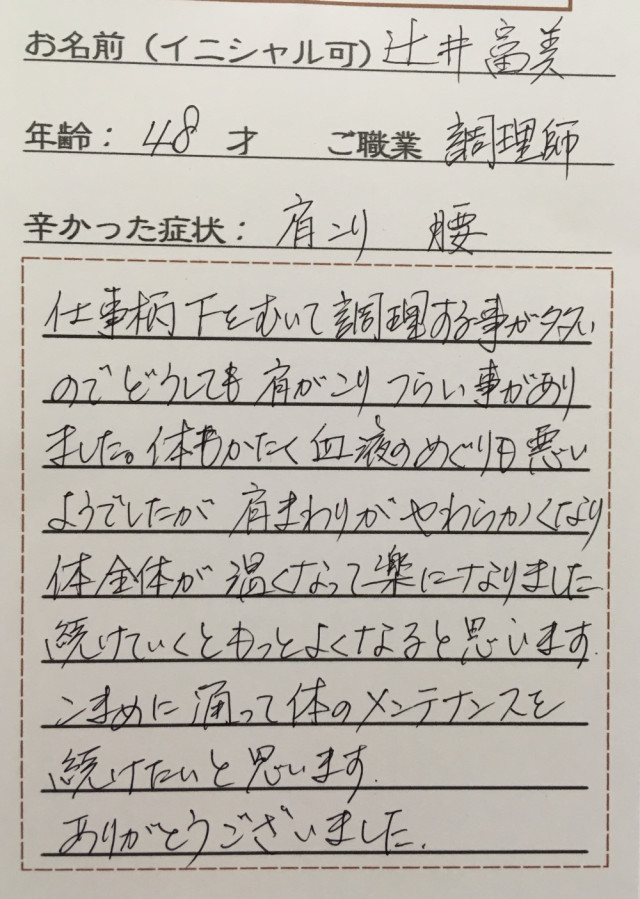 お名前（イニシャル可）辻井富美
年齢：48才　ご職業 調理師
辛かった症状：肩こり　腰
仕事柄下をむいて調理する事が多い
のでどうしても肩がこりつらい事があり
ました。体もかたく血液のめぐりも悪い
ようでしたが肩まわりがやわらかくなり
体全体が温くなって楽になりました
続けていくともっとよくなると思います.
こまめに通って体のメンテナンスを
続けたいと思います.
ありがとうございました.